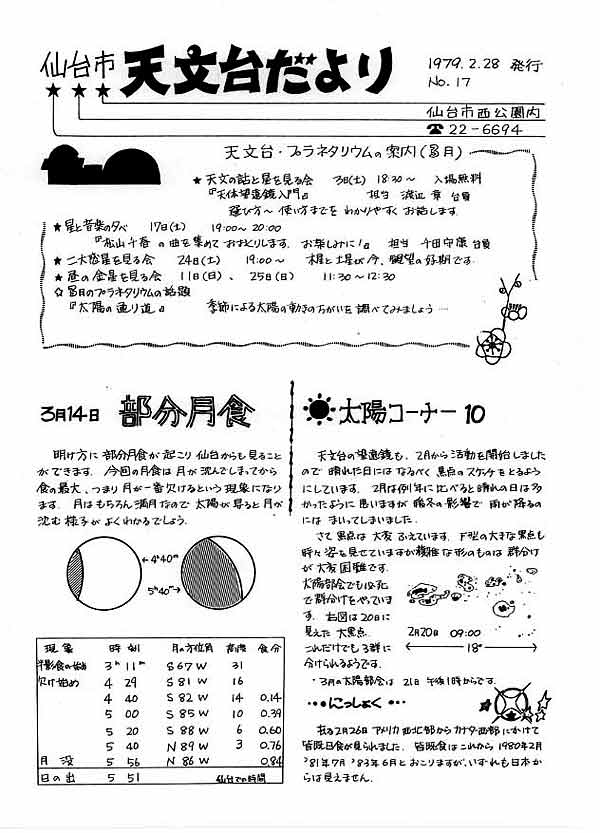 仙台市 天文台だより
1979.2.28 発行
No.17
仙台市西公園内
☎22-6694
天文台・プラネタリウムの案内(3月)
★ 天文の話と星を見る会 3日(土) 18:30～ 入場無料
『天体望遠鏡入門』 担当 渡辺 章 台員
選び方～使い方までを わかりやすく お話します.
★ 星と音楽の夕べ 17日(土) 19:00～20:00
『松山千春 の曲を集めて おおくりします. お楽しみに!』 担当 千田守康 台員
★ 二大惑星を見る会 24日(土) 19:00～ 木星と土星が今、観望の好期です.
★ 昼の金星を見る会 11日(日)、25日(日) 11:30～12:30
☆ 3月のプラネタリウムの話題
『太陽の通り道』 季節による太陽の動きのちがいを 調べてみましょう…
3月14日 部分月食
明け方に 部分月食が 起こり 仙台からも見ること
ができます. 今回の月食は 月が沈んでしまってから
食の最大、つまり 月が一番欠けるという 現象になり
ます. 月はもちろん 満月なので 太陽が昇ると 月が
沈む 様子が よくわかるでしょう.
4ʰ40ᵐ
5ʰ40ᵐ
現象 時刻 月の方位角 高度 食分
半影食の始め 3ʰ 11ᵐ S67W 31
欠け始め 4 29 S81W 16
4 40 S82W 14 0.14
5 00 S85W 10 0.39
5 20 S88W 6 0.60
5 40 N89W 3 0.76
月没 5 56 N86W 0.84
日の出 5 51 仙台での時間
太陽コーナー 10
天文台の望遠鏡も、2月から活動を開始しました
ので 晴れた日には なるべく 黒点のスケッチをとるよう
にしています. 2月は例年に比べると晴れの日は多
かったように 思いますが 暖冬の影響で 雨が降るの
には まいってしまいました.
さて 黒点は 大変 ふえています. F型の大きな黒点も
時々 姿を見せていますが複雑な形のものは 群分け
が大変困難です.
太陽部会でも必死
で群分けをやっていま
す. 右図は20日に
見えた 大黒点.
これだけでも 3群に
分けられるようです.
2月20日 09:00
18°
・3月の太陽部会は 21日 午後1時からです.
・・・にっしょく・・・
去る2月26日 アメリカ西北部から カナダ西部にかけて
皆既日食が見られました. 皆既食はこれから 1980年2月
'81年7月 '83年6月とおこりますが、いずれも日本か
らは見えません.